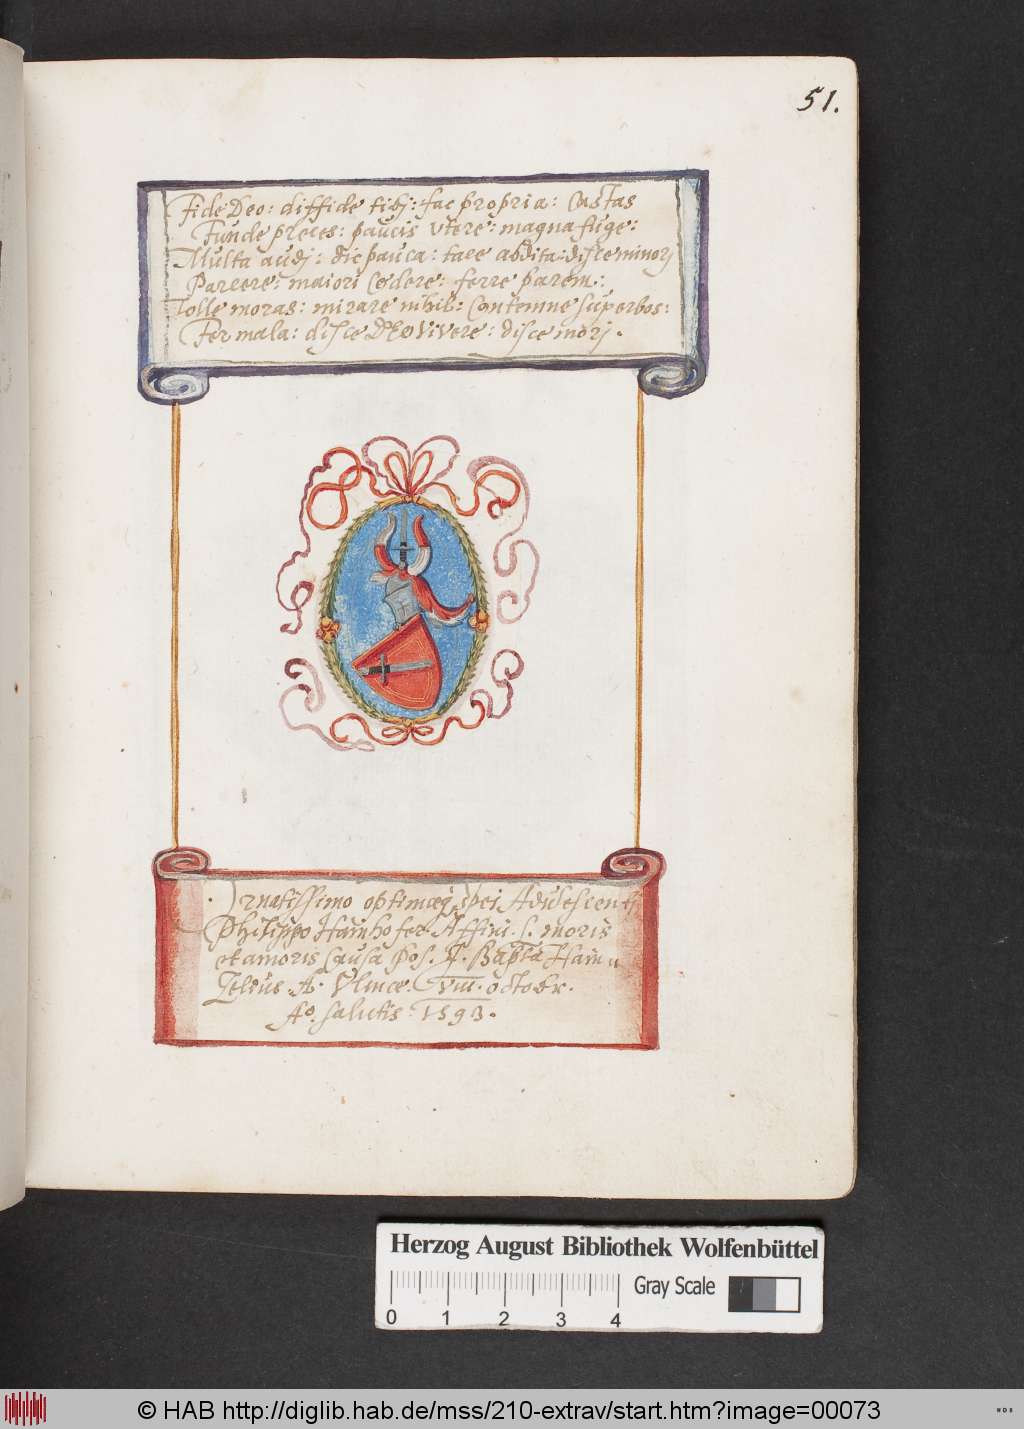 51.
Fide Deo: diffide tibj: fac propria: Castas
Funde preces: paucis vtere: magna fuge:
Multa audj: dic pauca: tace abdita: disce minorj
Parcere: maiori Cedere: ferre parem:
Tolle moras: mirare nihil: Contemne superbos:
Fer mala: disce DEO vivere: disce morj.
Ornatissimo optimæq spei Adulescenti
Philippo Hainhofer Affini. s. moris
et amoris Causa Pos. J. Bapta Hain
Zelius. A. Vlmæ. VIII. octobr.
Ao. salutis 1593.
Herzog August Bibliothek Wolfenbüttel
Gray Scale
0 1 2 3 4
© HAB http://diglib.hab.de/mss/210-extrav/start.htm?image=00073